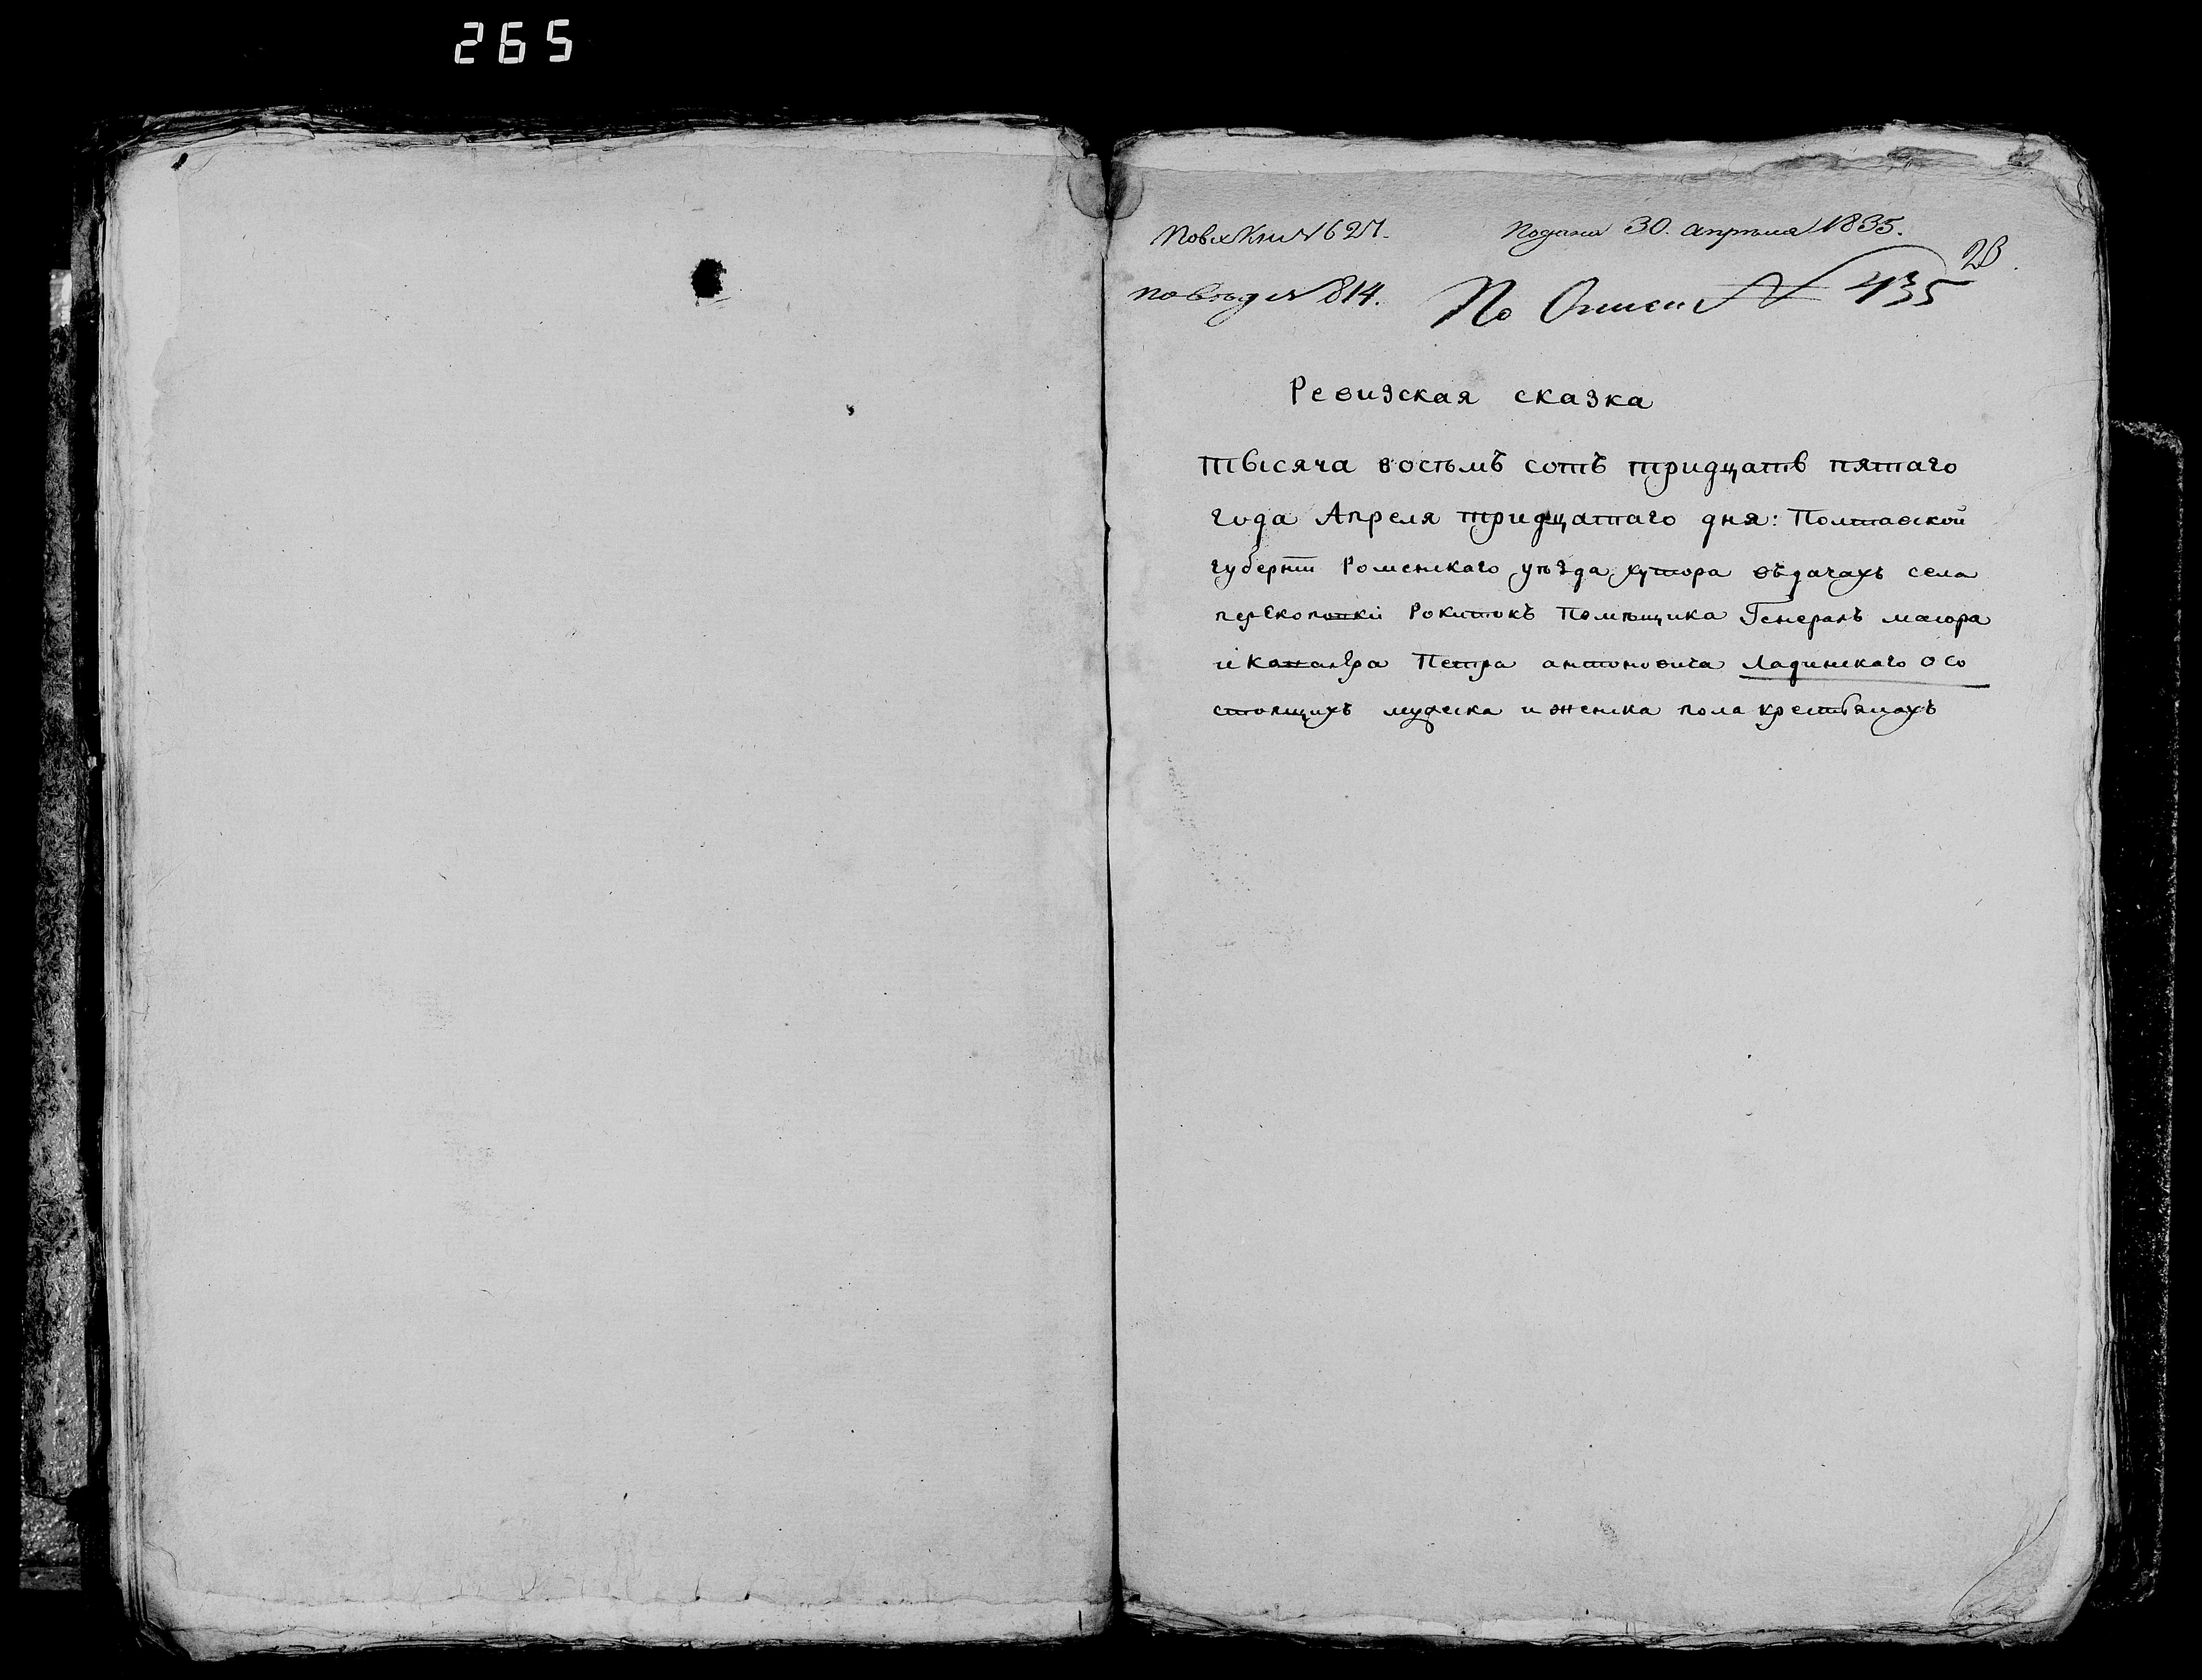 265
По вх Кни № 627. Подана 30. апрѣля 1835.
28.
по Вѣд № 814. По Описи № 435
Ревизская сказка
тысяча восѣмъ сотъ тридцать пятаго
года Апреля тридцатаго дня: Полтавской
губернии Роменскаго уѣзда хутора въдачахъ села
перекоповки Рокитокъ Помѣщика Генералъ маиора
и кавалера Петра антоновича Ладинскаго о со
стоящихъ мужеска и женска пола крестьянахъ